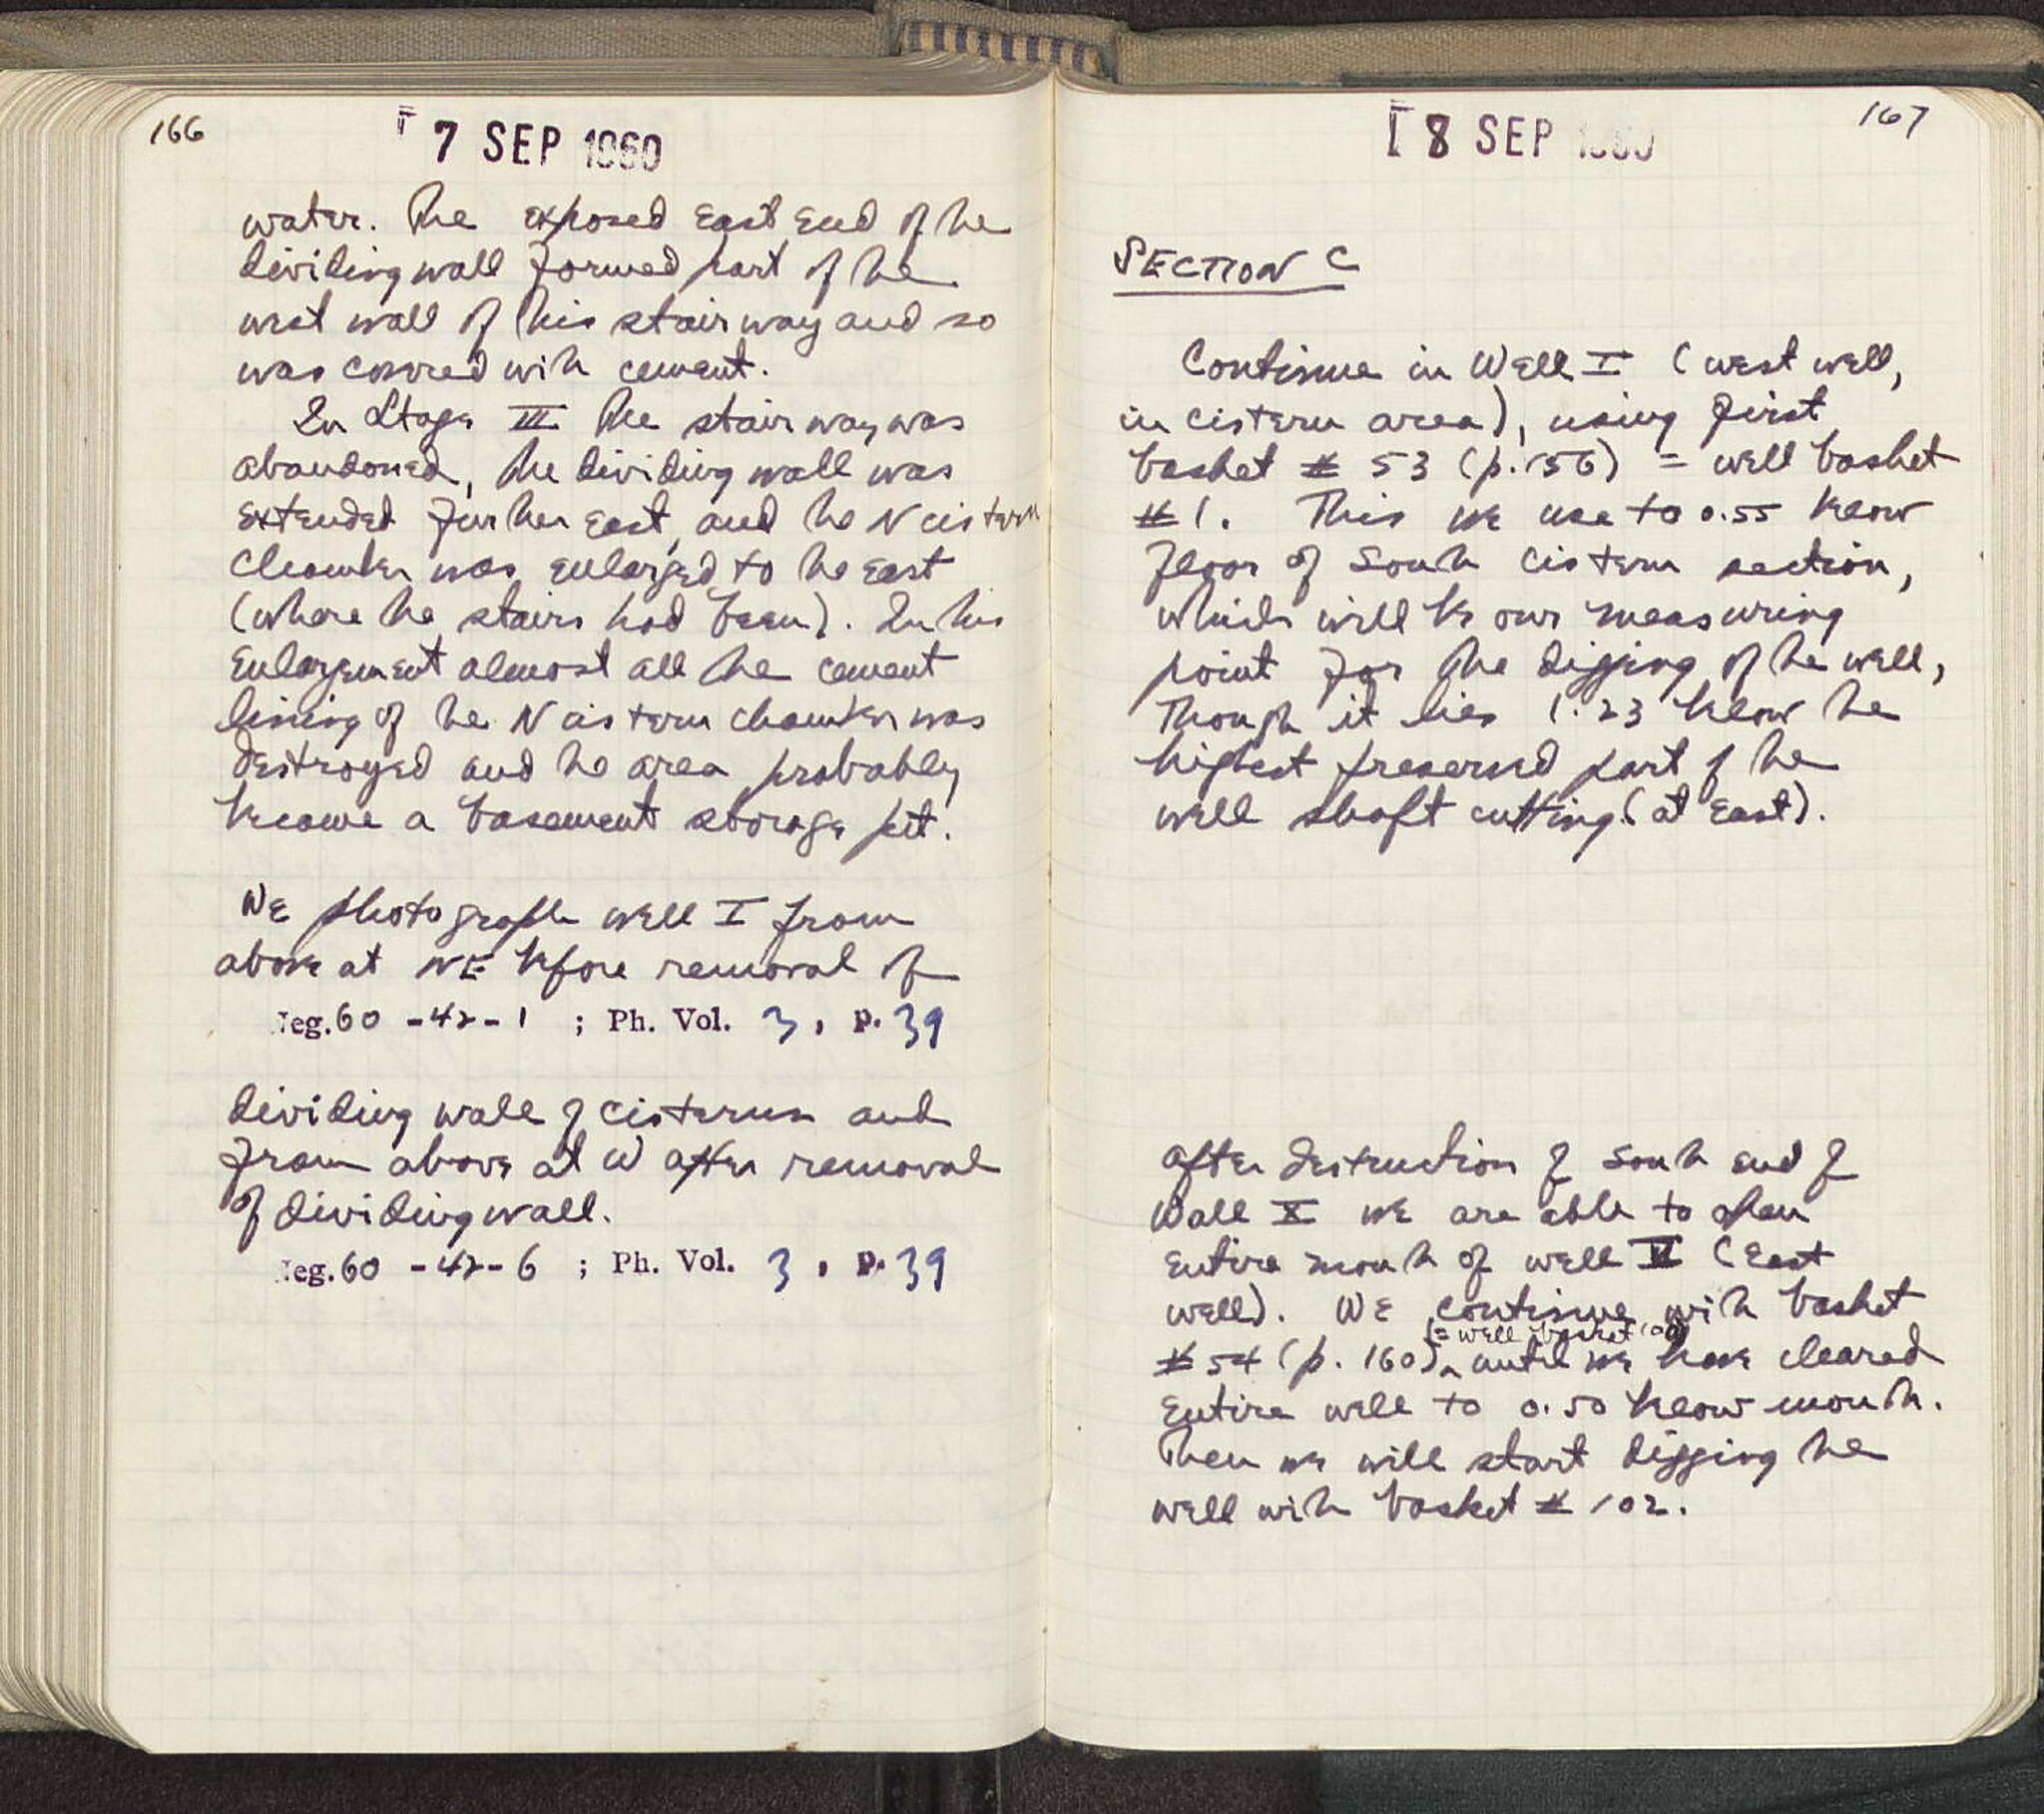 166
7 SEP 1960
water. The exposed east end of the
dividing wall formed part of the
west wall of this stairway and so
was covered with cement.
In Stage III the stairway was
abandoned, the dividing wall was
extended further east, and the N cistern
chamber was enlarged to the east
(where the stairs had been). In this
enlargement almost all the cement
lining of the N cistern chamber was
destroyed and the area probably
became a basement storage pit.
We photograph well I from
above at NE before removal of
Neg. 60 -42-1 ; Ph. Vol. 3, p. 39
dividing wall of cisterns and
from above at W after removal
of dividing wall.
Neg. 60 -42-6 ; Ph. Vol. 3, p. 39
167
8 SEP 1960
SECTION C
Continue in Well I (west well,
in cistern area), using first
basket # 53 (p. 156) = well basket
#1. This we use to 0.55 below
floor of South cistern section,
which will be our measuring
point for the digging of the well,
though it lies 1.23 below the
highest preserved part of the
well shaft cutting (at east).
After destruction of south end of
Wall X we are able to plan
entire mouth of well (East
well). We continue with basket
(= well basket 101)
# 54 (p. 160), until we have cleared
entire well to 0.50 below mouth.
Then we will start digging the
well with basket # 102.